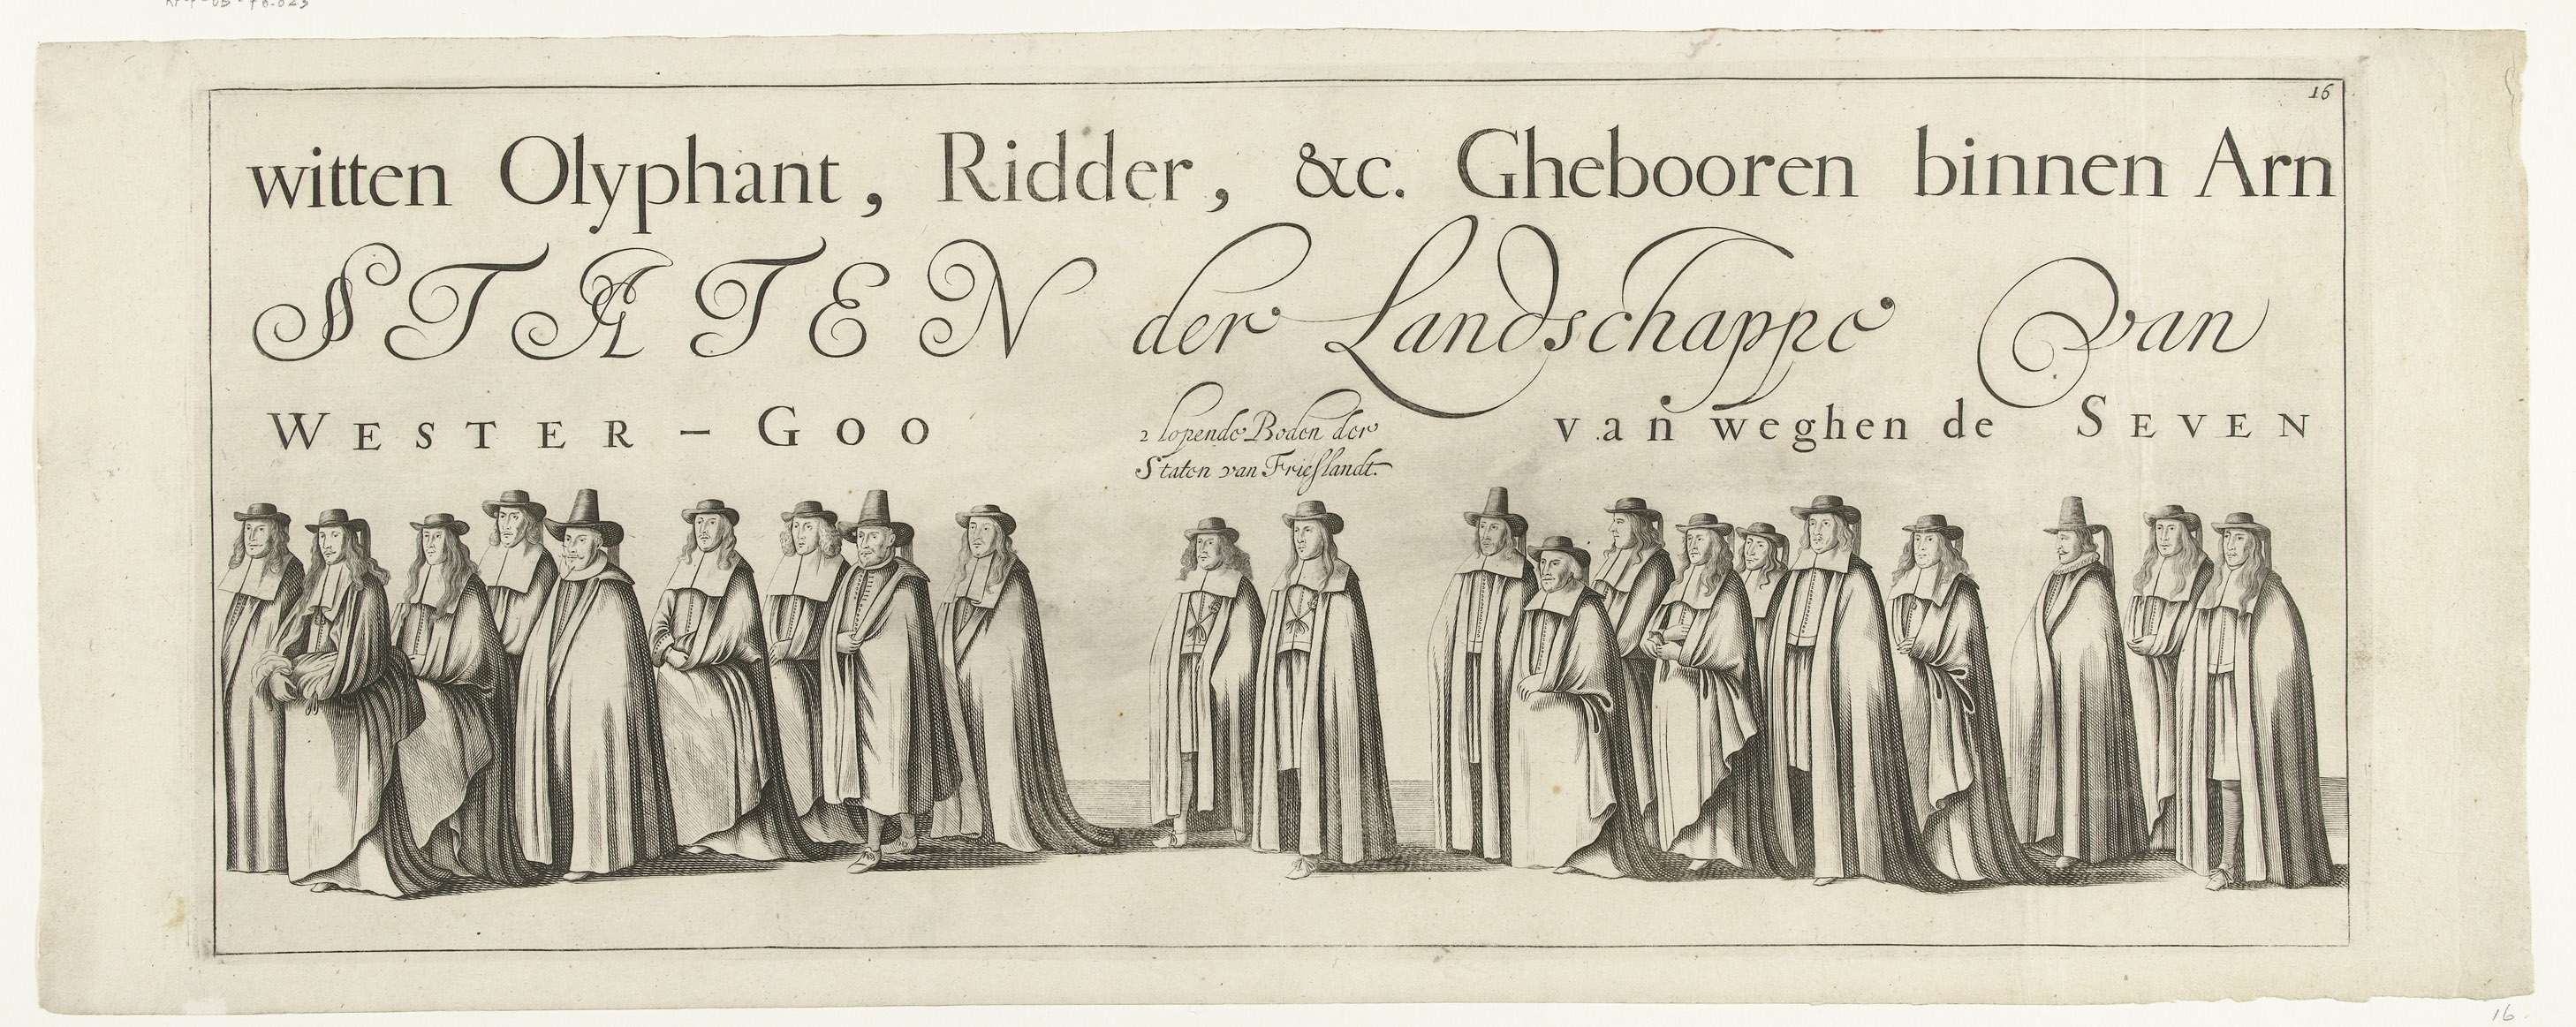 16
witten Olyphant, Ridder, &c. Ghebooren binnen Arn
STATEN der Landschappe van
WESTER-GOO
2 lopende Boden der
Staten van Frieslandt.
van weghen de SEVEN
16.